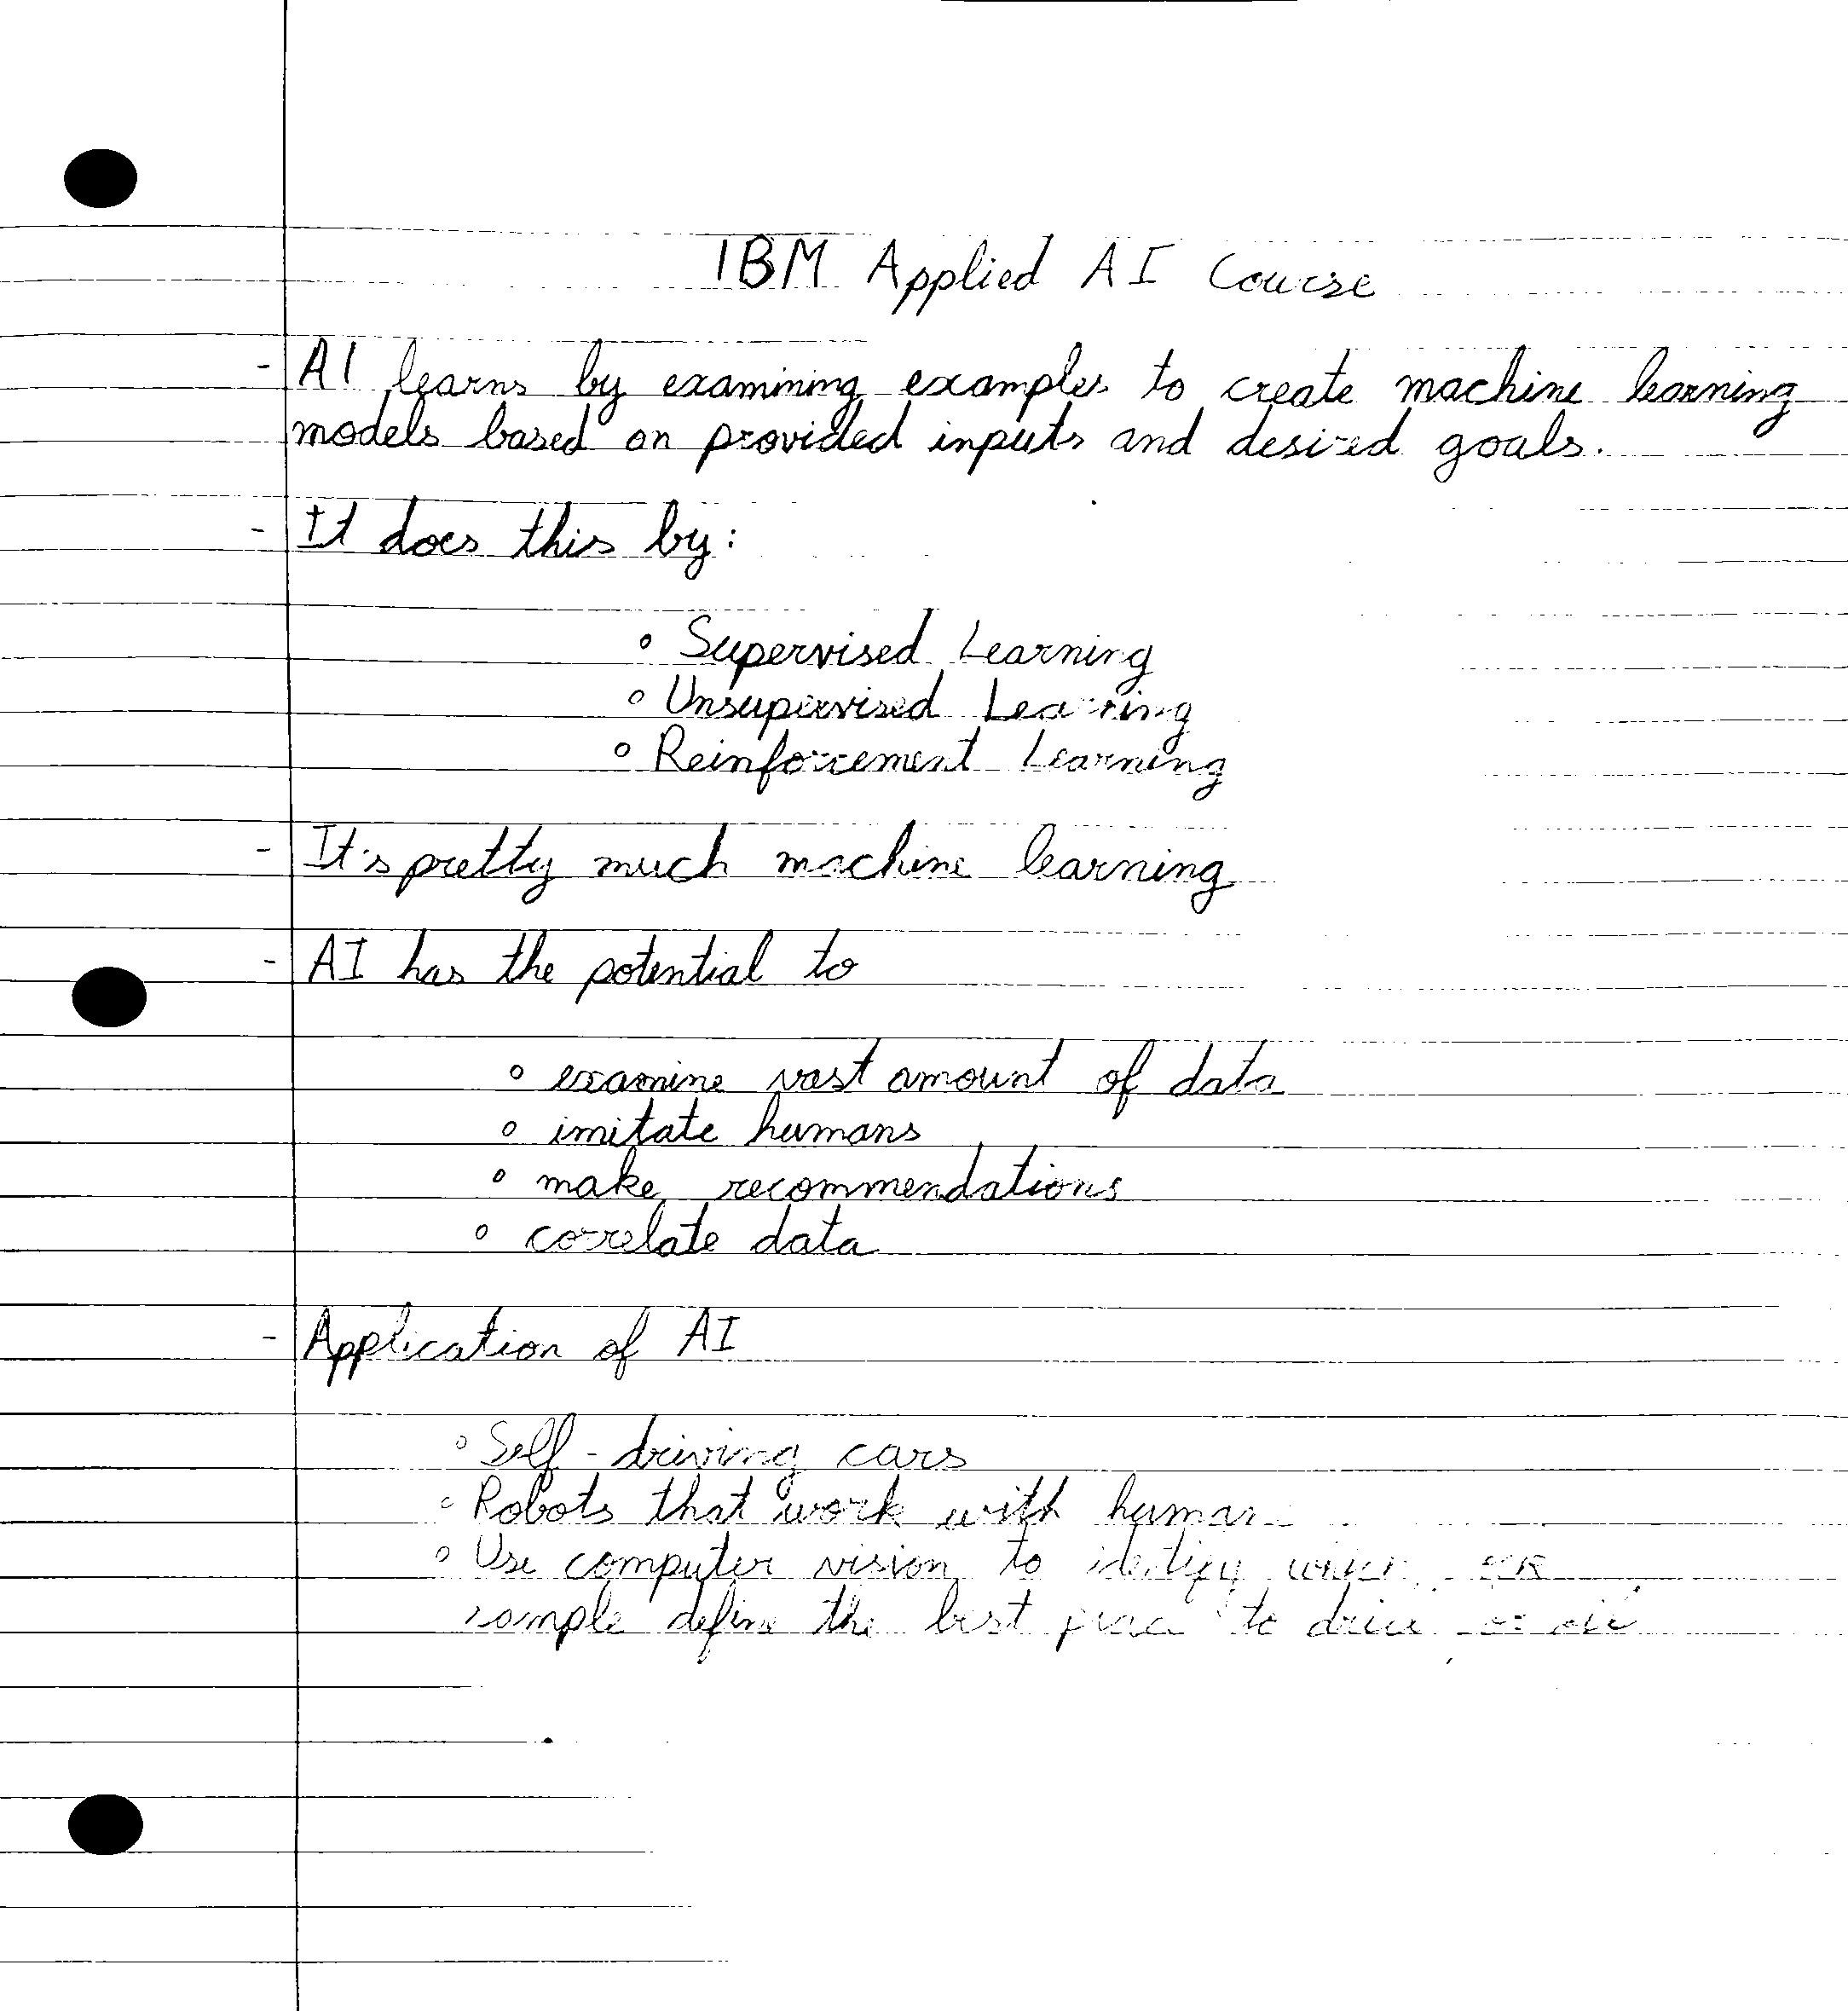 IBM Applied AI Course
- AI learns by examining examples to create machine learning
models based on provided inputs and desired goals.
- It does this by:
° Supervised Learning
° Unsupervised Learning
° Reinforcement Learning
- It's pretty much machine learning
- AI has the potential to
° examine vast amount of data
° imitate humans
° make recommendations
° correlate data
- Application of AI
° Self-driving cars
° Robots that work with human
° Use computer vision to identify
sample define the best place to